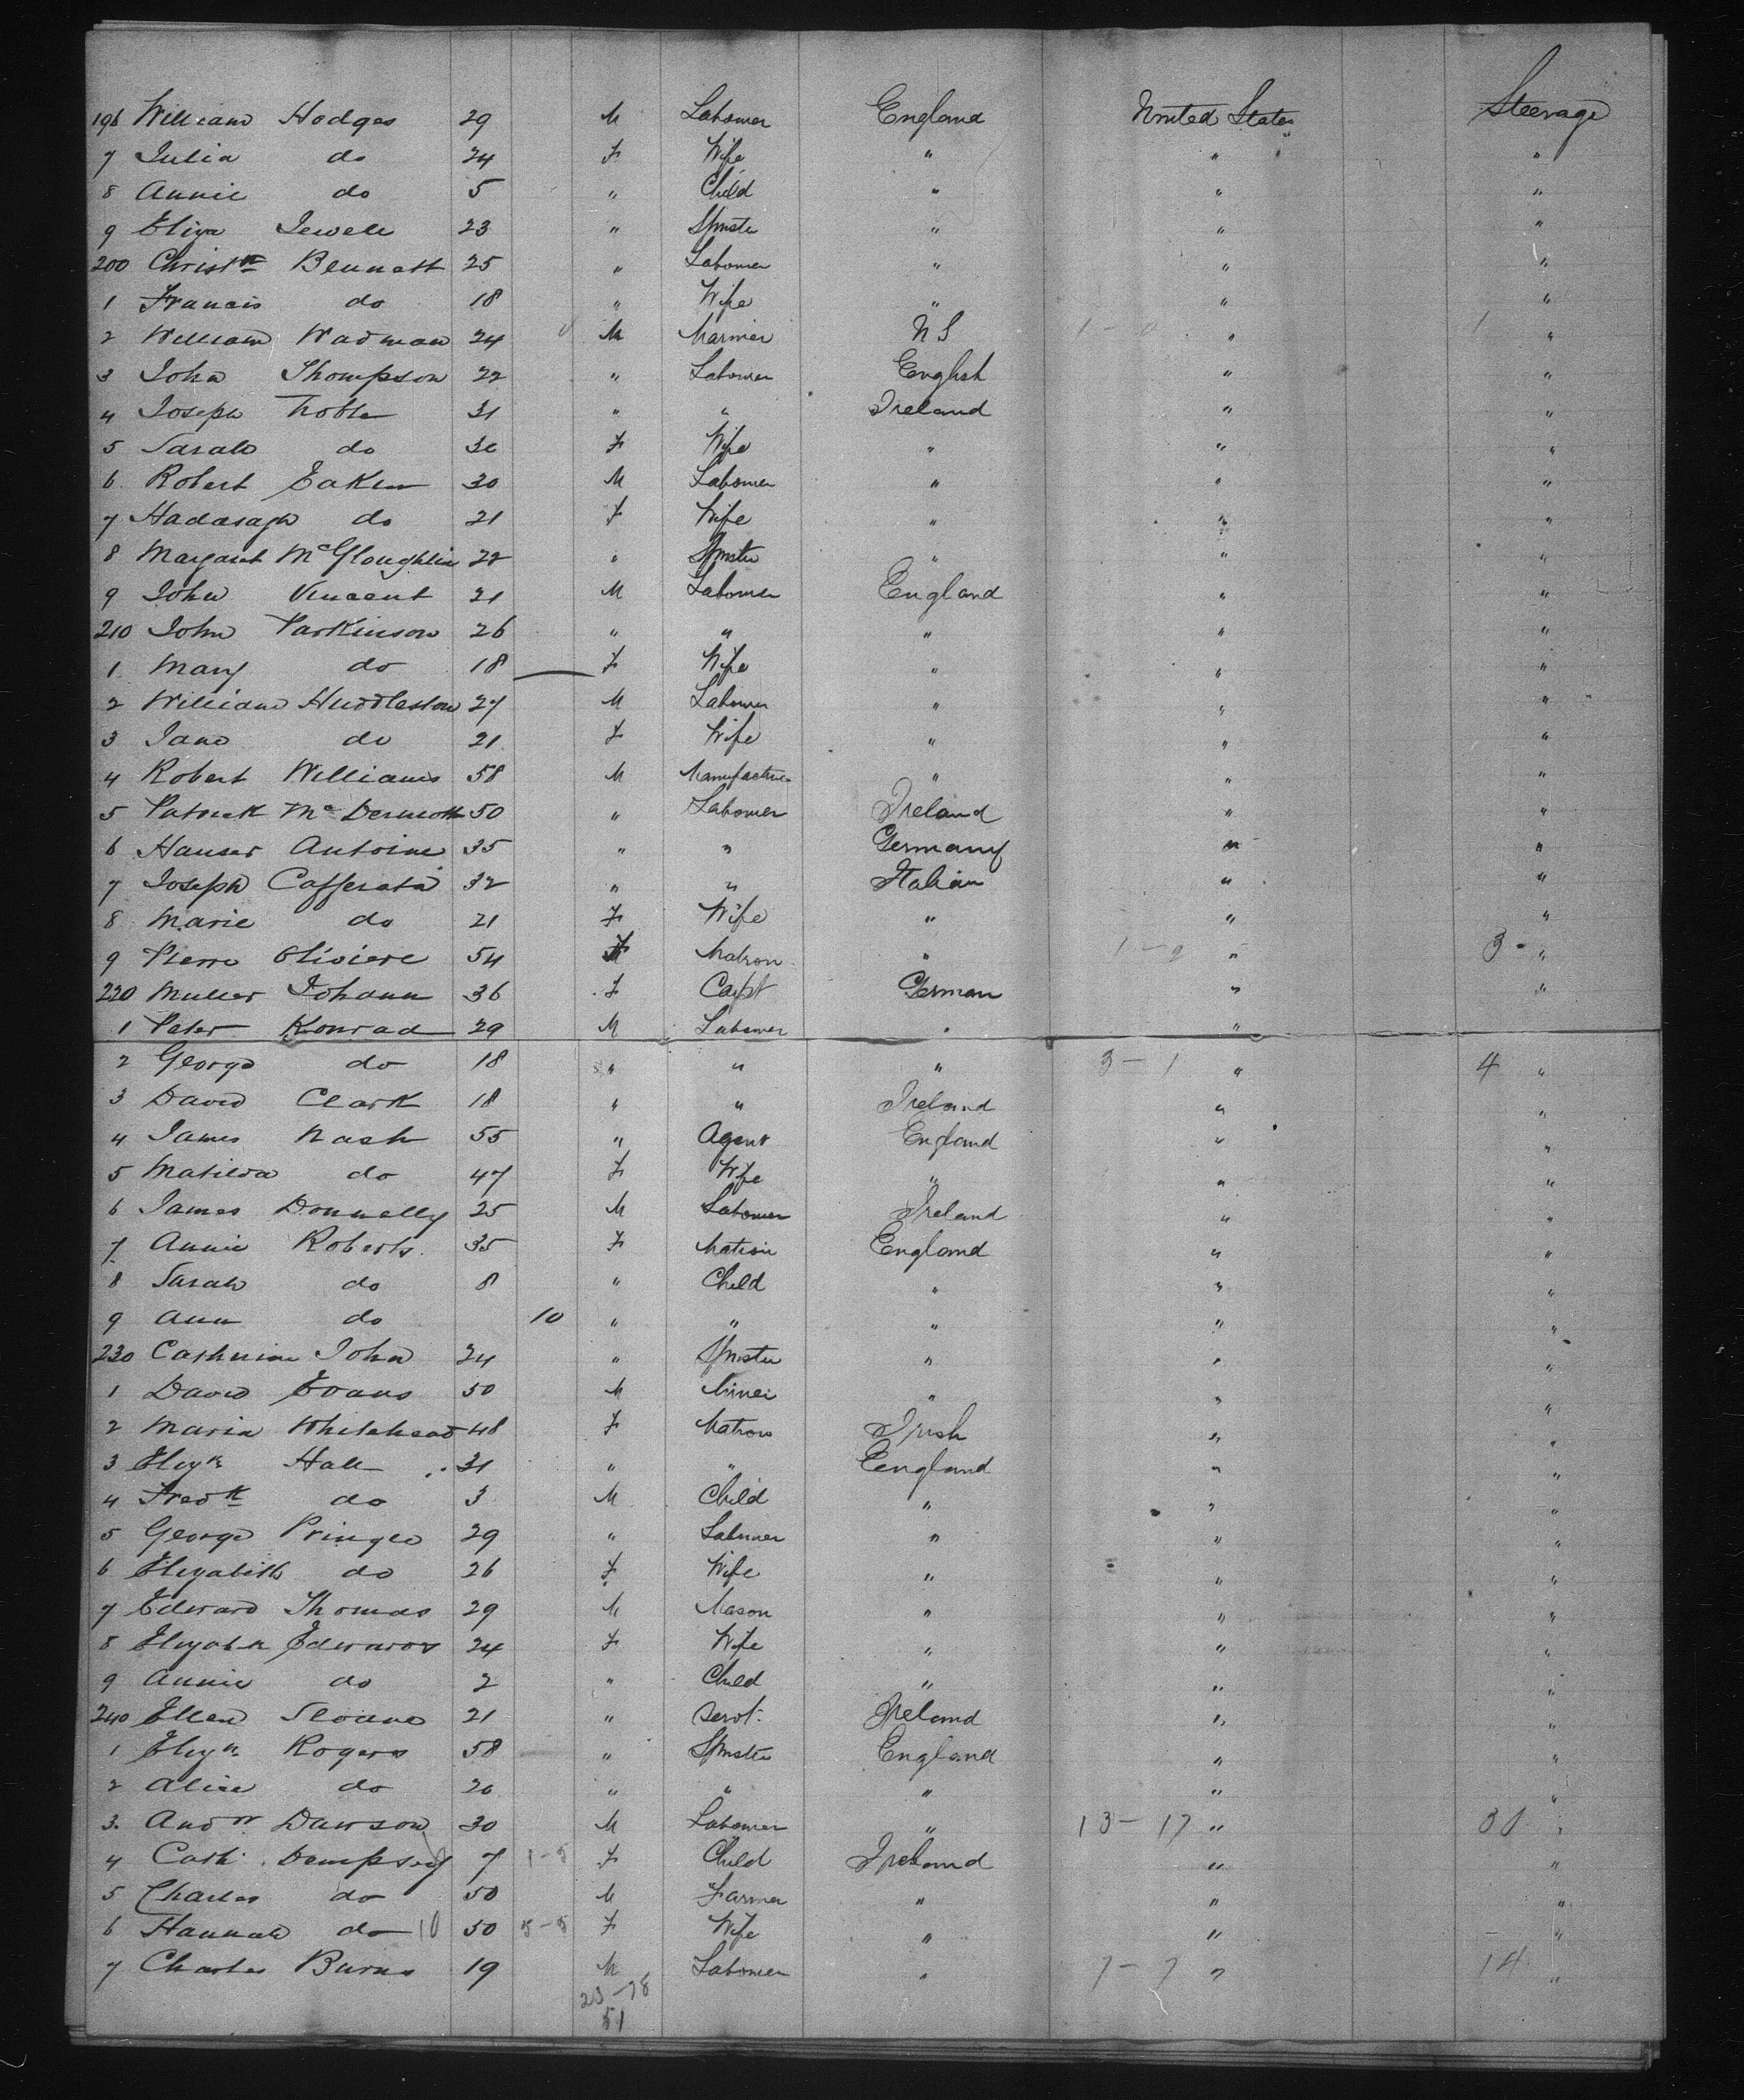 196 William Hodges 29 M Labourer England United States Steerage
7 Julia do 24 F Wife " " "
8 Annie do 5 " Child " " "
9 Eliza Jewell 23 " Spinster " " "
200 Christr Bennett 25 " Labourer " " "
1 Francis do 18 " Wife " " "
2 William Wadman 24 M Mariner U S " "
3 John Thompson 22 " Labourer English " "
4 Joseph Noble 31 " " Ireland " "
5 Sarah do 30 F Wife " " "
6 Robert Eaken 30 M Labourer " " "
7 do 21 F Wife " " "
8 Margaret McGloughlin 22 " Spinster " " "
9 John Vincent 21 M Labourer England " "
210 John Parkinson 26 " " " " "
1 Mary do 18 F Wife " " "
2 William Huddleston 27 M Labourer " " "
3 Jane do 21 F Wife " " "
4 Robert Williams 58 M Manufacturer " " "
5 Patrick McDermott 50 " Labourer Ireland " "
6 Hauser Antoine 35 " " Germany " "
7 Joseph Cafferata 32 " " Italian " "
8 Marie do 21 F Wife " " "
9 Pierre Oliviere 54 F Matron " 1 - 2 " 3 - "
220 Muller Johann 36 F Capt German " "
1 Peter Konrad 29 M Labourer " "
2 George do 18 " " " 3 - 1 " 4 "
3 David Clark 18 " " Ireland " "
4 James Nash 55 " Agent England " "
5 Matilda do 47 F Wife " " "
6 James Donnelly 25 M Labourer Ireland " "
7 Annie Roberts 35 F Matron England " "
8 Sarah do 8 " Child " " "
9 Ann do 10 " " " " "
230 Catherine John 24 " Spinster " " "
1 David Evans 50 M Miner " " "
2 Maria Whitehead 48 F Matron Irish " "
3 Elizth Hall 31 " " England " "
4 Fredk do 3 M Child " " "
5 George Pringle 29 " Labourer " " "
6 Elizabeth do 26 F Wife " " "
7 Edward Thomas 29 M Mason " " "
8 Elizabth Edwards 24 F Wife " " "
9 Annie do 2 " Child " " "
240 Ellen Sloane 21 " Servt. Ireland " "
1 Elizth Rogers 58 " Spinster England " "
2 Alice do 20 " " " " "
3 Andw Dawson 30 M Labourer " 13 - 17 " 30 "
4 Cath. Dempsey 7 1 - 5 F Child Ireland " "
5 Charles do 50 M Farmer " " "
6 Hannah do 10 50 5 - 5 F Wife " " "
7 Charles Burns 19 M Labourer " 7 - 7 " 14 "
23 - 28
51